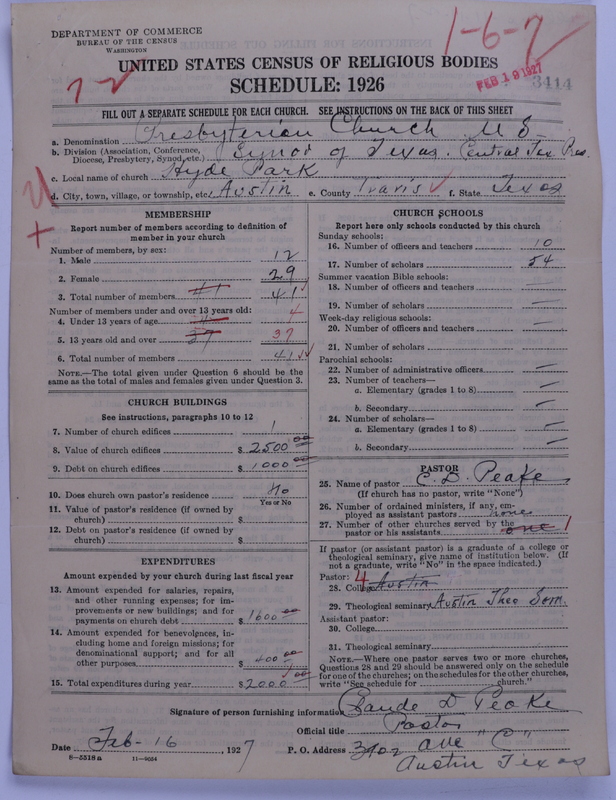 DEPARTMENT OF COMMERCE
BUREAU OF THE CENSUS
WASHINGTON
1-6-7
72
FEB 19 1927
3414
UNITED STATES CENSUS OF RELIGIOUS BODIES
SCHEDULE: 1926
FILL OUT A SEPARATE SCHEDULE FOR EACH CHURCH. SEE INSTRUCTIONS ON THE BACK OF THIS SHEET
a. Denomination Presbyterian Church U S
b. Division (Association, Conference, Diocese, Presbytery, Synod, etc.) Synod of Texas. Central Tex Pres.
c. Local name of church Hyde Park
d. City, town, village, or township, etc. Austin e. County Travis f. State Texas
MEMBERSHIP
Report number of members according to definition of
member in your church
Number of members, by sex:
1. Male 12
2. Female 29
3. Total number of members 41 41
Number of members under and over 13 years old:
4. Under 13 years of age 4
5. 13 years old and over 37 37
6. Total number of members 41
NOTE.—The total given under Question 6 should be
same as the total of males and females given under Question 3.
CHURCH BUILDINGS
See instructions, paragraphs 10 to 12
7. Number of church edifices 1
8. Value of church edifices $ 2500 00
9. Debt on church edifices $ 1000 00
10. Does church own pastor's residence No
Yes or No
11. Value of pastor's residence (if owned by
church) $
12. Debt on pastor's residence (if owned by
church) $
EXPENDITURES
Amount expended by your church during last fiscal year
13. Amount expended for salaries, repairs,
and other running expenses; for im-
provements or new buildings; and for
payments on church debt $ 1600 00
14. Amount expended for benevolences, in-
cluding home and foreign missions; for
denominational support; and for all
other purposes 400 00
15. Total expenditures during year $ 2000 00
CHURCH SCHOOLS
Report here only schools conducted by this church
Sunday schools:
16. Number of officers and teachers 10
17. Number of scholars 54
Summer vacation Bible schools:
18. Number of officers and teachers —
19. Number of scholars —
Week-day religious schools:
20. Number of officers and teachers —
21. Number of scholars —
Parochial schools:
22. Number of administrative officers —
23. Number of teachers—
a. Elementary (grades 1 to 8) —
b. Secondary —
24. Number of scholars—
a. Elementary (grades 1 to 8) —
b. Secondary —
PASTOR
25. Name of pastor C. D. Peake
(If church has no pastor, write "None")
26. Number of ordained ministers, if any, em-
ployed as assistant pastors none
27. Number of other churches served by the
pastor or his assistants one 1
If pastor (or assistant pastor) is a graduate of a college or
theological seminary, give name of institution below. (If
not a graduate, write "No" in the space indicated.)
Pastor: 4
28. College Austin
29. Theological seminary Austin Theo Sem.
Assistant pastor:
30. College
31. Theological seminary
NOTE.—Where one pastor serves two or more churches,
Questions 28 and 29 should be answered only on the schedule
for one of the churches; on the schedules for the other churches,
write "See schedule for church."
Signature of person furnishing information Claude D Peake
Official title Pastor
Date Feb-16, 1927 P. O. Address 3702 Ave "C"
8-5518a 11-9054 Austin Texas